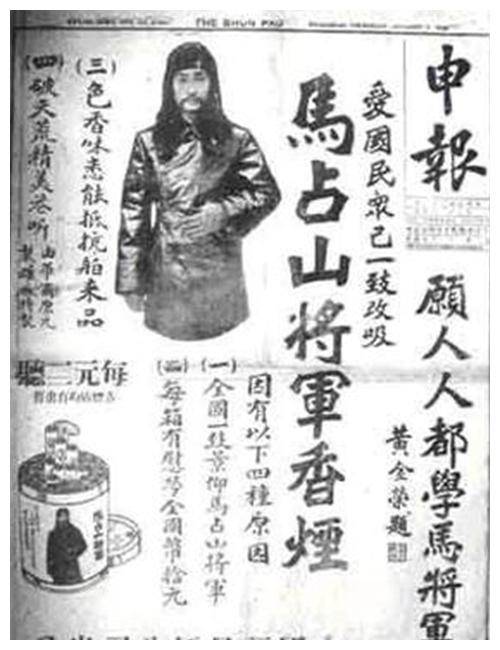 THE SHUN PAO
申報
願人人都學馬將軍
黃金榮題
愛國民眾已一致改吸
馬占山將軍香煙
因有以下四種原因
(一)全國一致景仰馬占山將軍
(二)每箱有慰勞金國幣拾元
(三)色香味悉能抵抗舶来品
(四)破天荒精美卷听
每元三聽